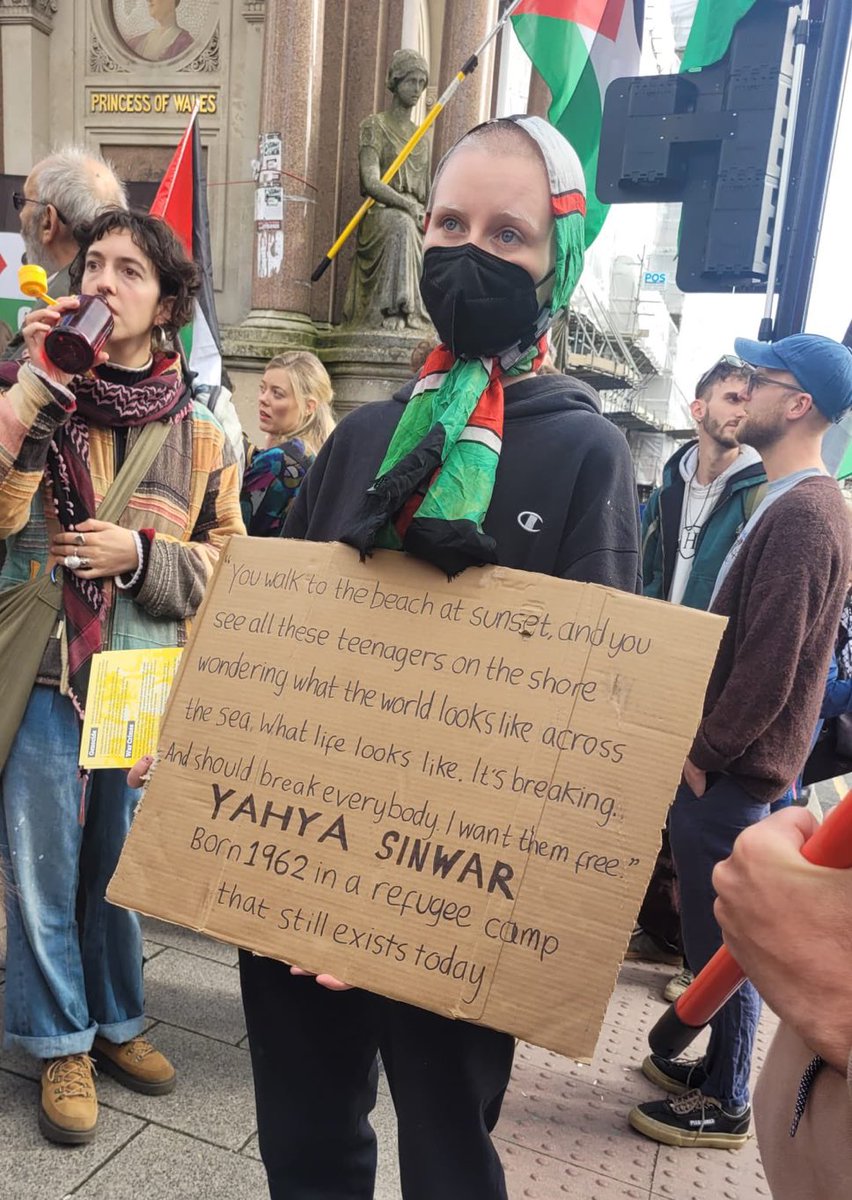 PRINCESS OF WALES
POS
"You walk to the beach at sunset, and you
see all these teenagers on the shore
wondering what the world looks like across
the sea, what life looks like. It's breaking.
And should break everybody. I want them free."
YAHYA SINWAR
Born 1962 in a refugee camp
that still exists today
Genocide
War Crimes